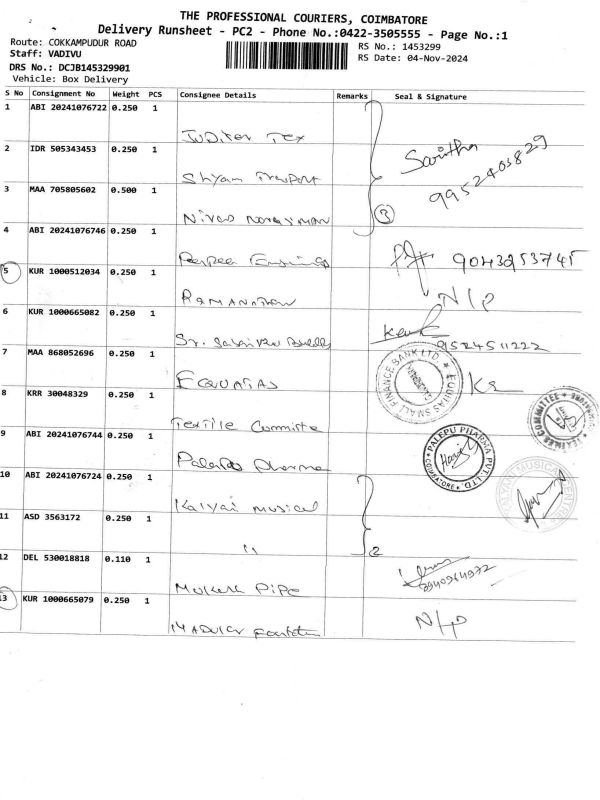 THE PROFESSIONAL COURIERS, COIMBATORE
Delivery Runsheet - PC2 - Phone No.:0422-3505555 - Page No.:1
Route: COKKAMPUDUR ROAD
Staff: VADIVU
RS No.: 1453299
RS Date: 04-Nov-2024
DRS No.: DCJB145329901
Vehicle: Box Delivery
S No Consignment No Weight PCS Consignee Details Remarks Seal & Signature
1 ABI 20241076722 0.250 1
Jupiter Tex
2 IDR 505343453 0.250 1
Shyam Transport
Savitha
9952403829
3 MAA 705805602 0.500 1
3
4 ABI 20241076746 0.250 1
9043953745
5 KUR 1000512034 0.250 1
Ramanathan
N/P
6 KUR 1000665082 0.250 1
9524511222
7 MAA 868052696 0.250 1
Equitas
EQUITAS SMALL FINANCE BANK LTD.
8 KRR 30048329 0.250 1
Textile Committe
TEXTILES COMMITTEE
9 ABI 20241076744 0.250 1
Palepu Pharma
PALEPU PHARMA PVT. LTD.
COIMBATORE
10 ABI 20241076724 0.250 1
Kalyani Musical
KALYANI MUSICAL
11 ASD 3563172 0.250 1
"
2
12 DEL 530018818 0.110 1
Mukesh Pipe
8940964972
13 KUR 1000665079 0.250 1
N/P